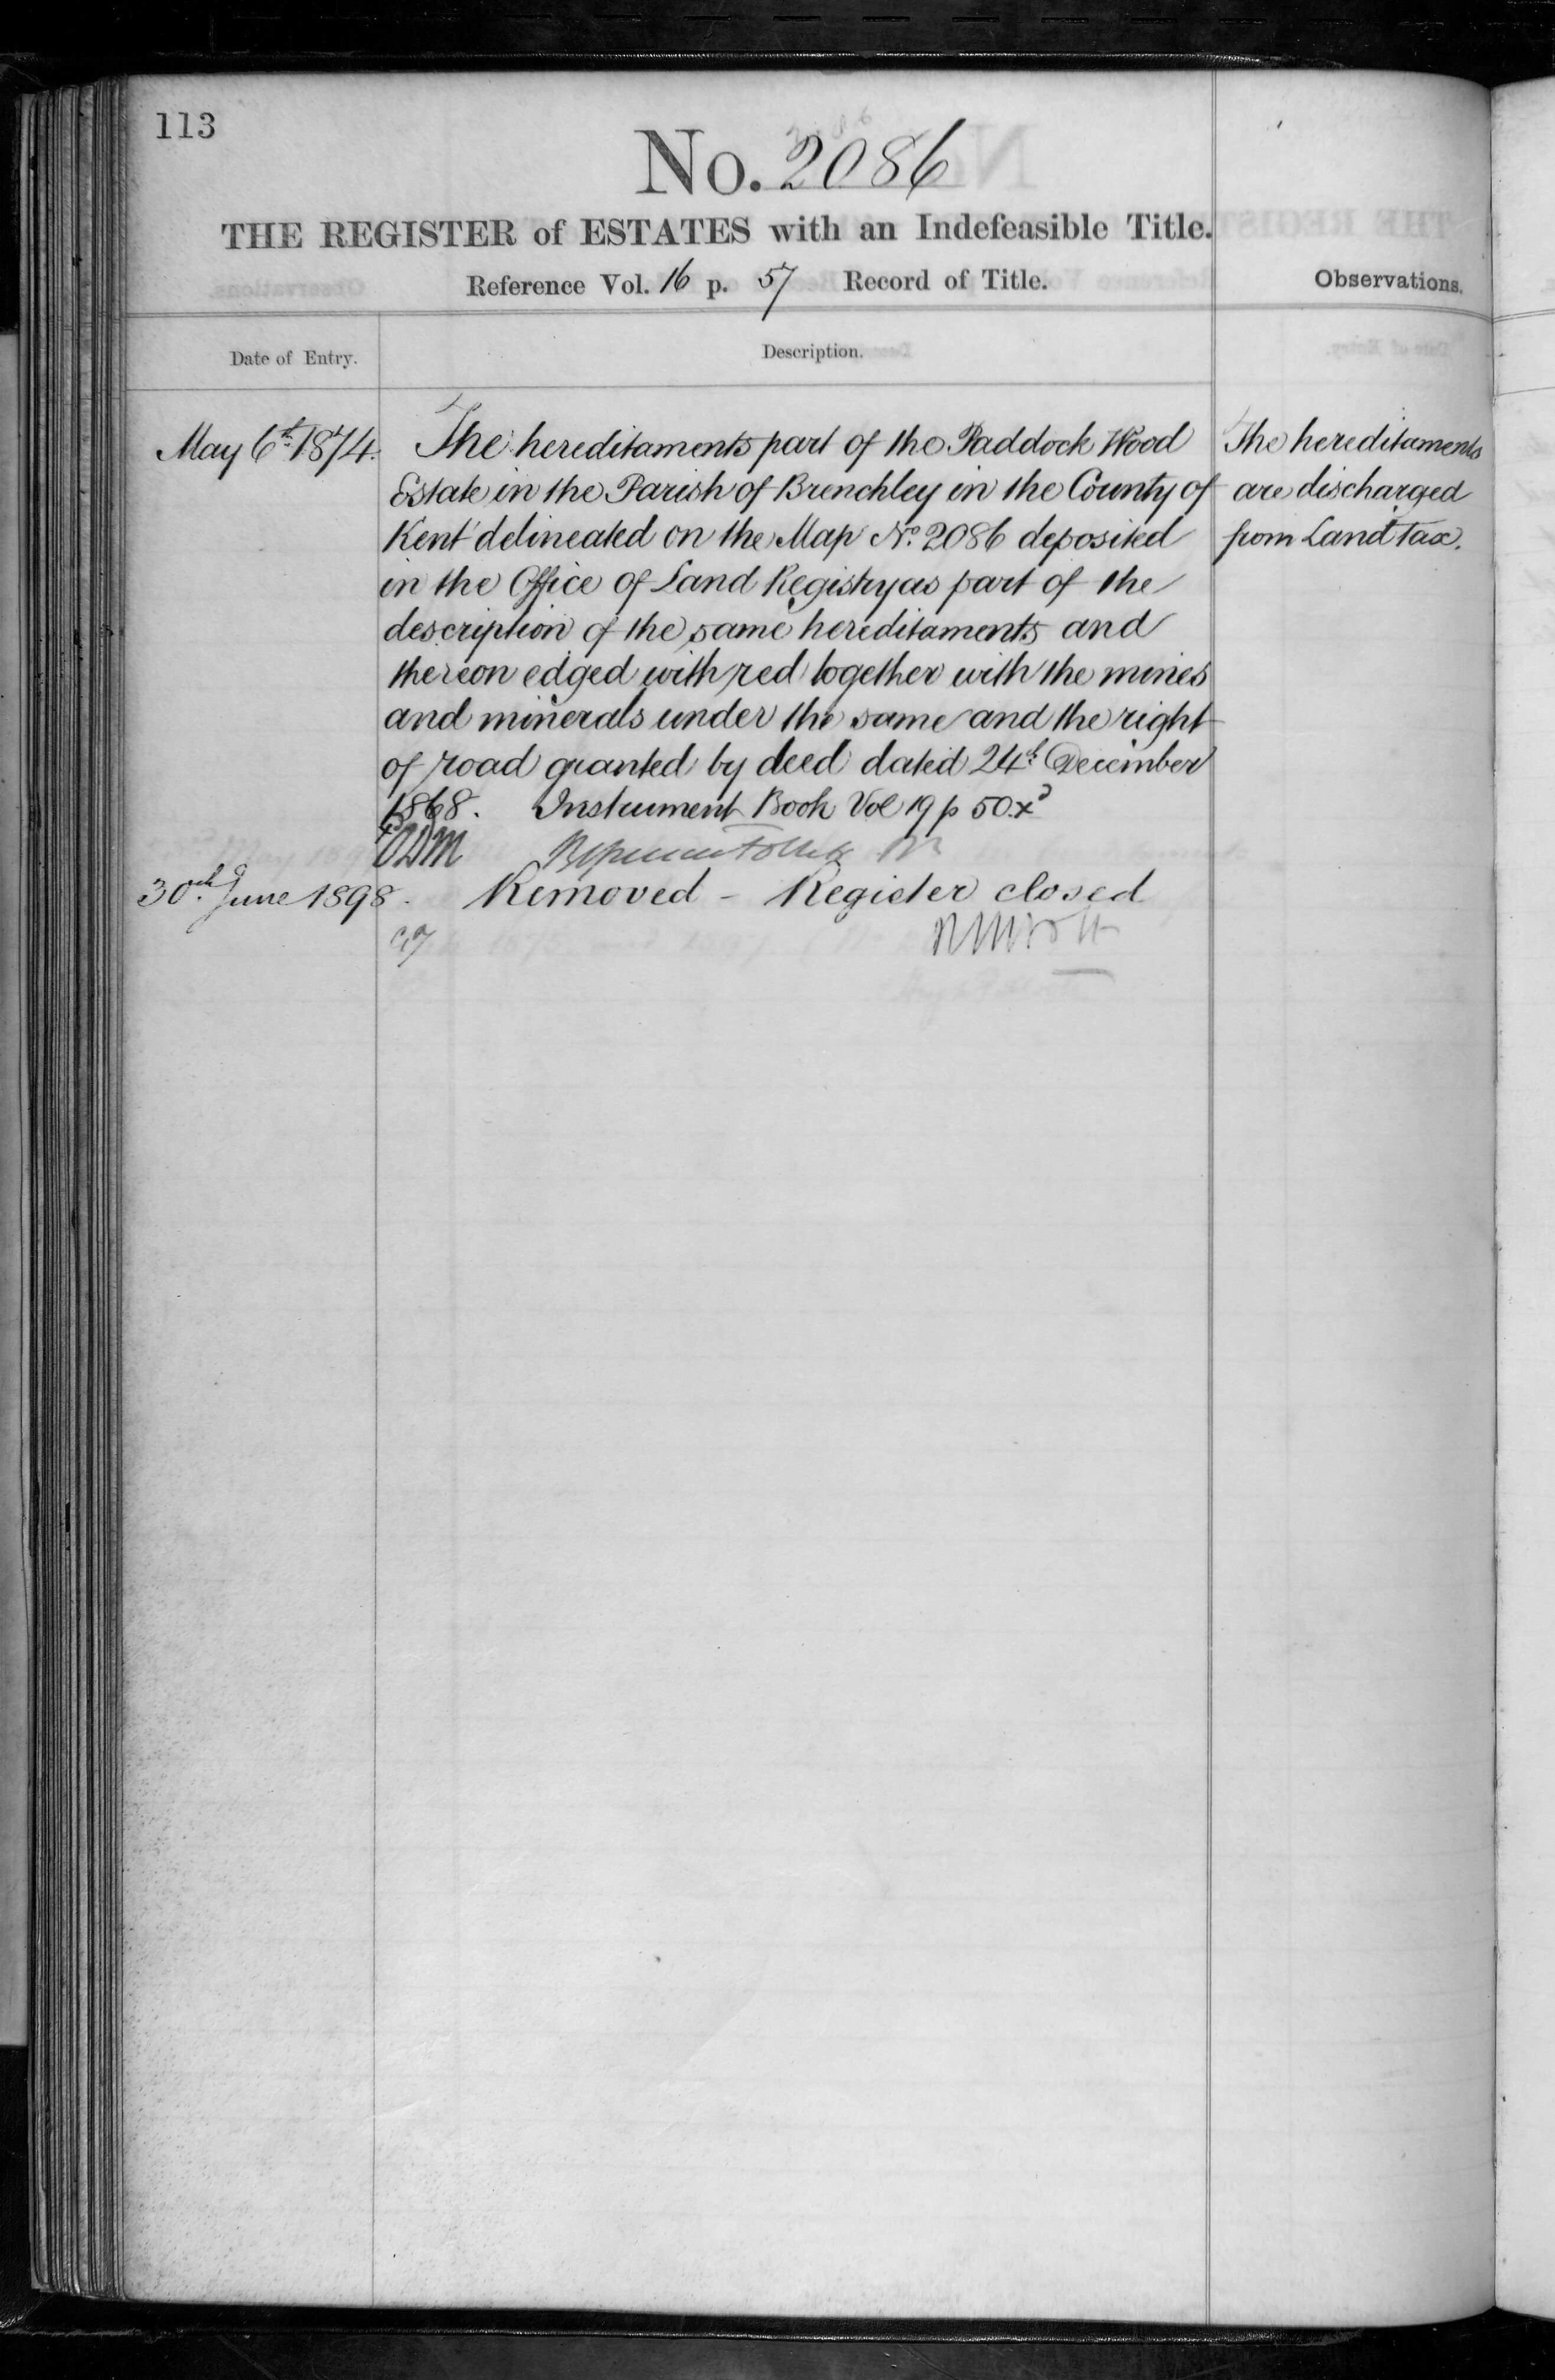 113
No. 2086
THE REGISTER of ESTATES with an Indefeasible Title.
Reference Vol. 16 p. 57 Record of Title.
Observations.
Date of Entry.
Description.
May 6th 1874.
The hereditaments part of the Paddock Wood
Estate in the Parish of Brenchley in the County of
Kent delineated on the Map No. 2086 deposited
in the Office of Land Registry as part of the
description of the same hereditaments and
thereon edged with red together with the mines
and minerals under the same and the right
of road granted by deed dated 24th December
1868. Instrument Book Vol 19 p 50.
The hereditaments
are discharged
from Land tax.
30th June 1898.
Removed - Register closed